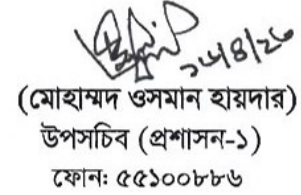 ১৬/৪/২৬
(মোহাম্মদ ওসমান হায়দার)
উপসচিব (প্রশাসন-১)
ফোন: ৫৫১০০৮৮৬